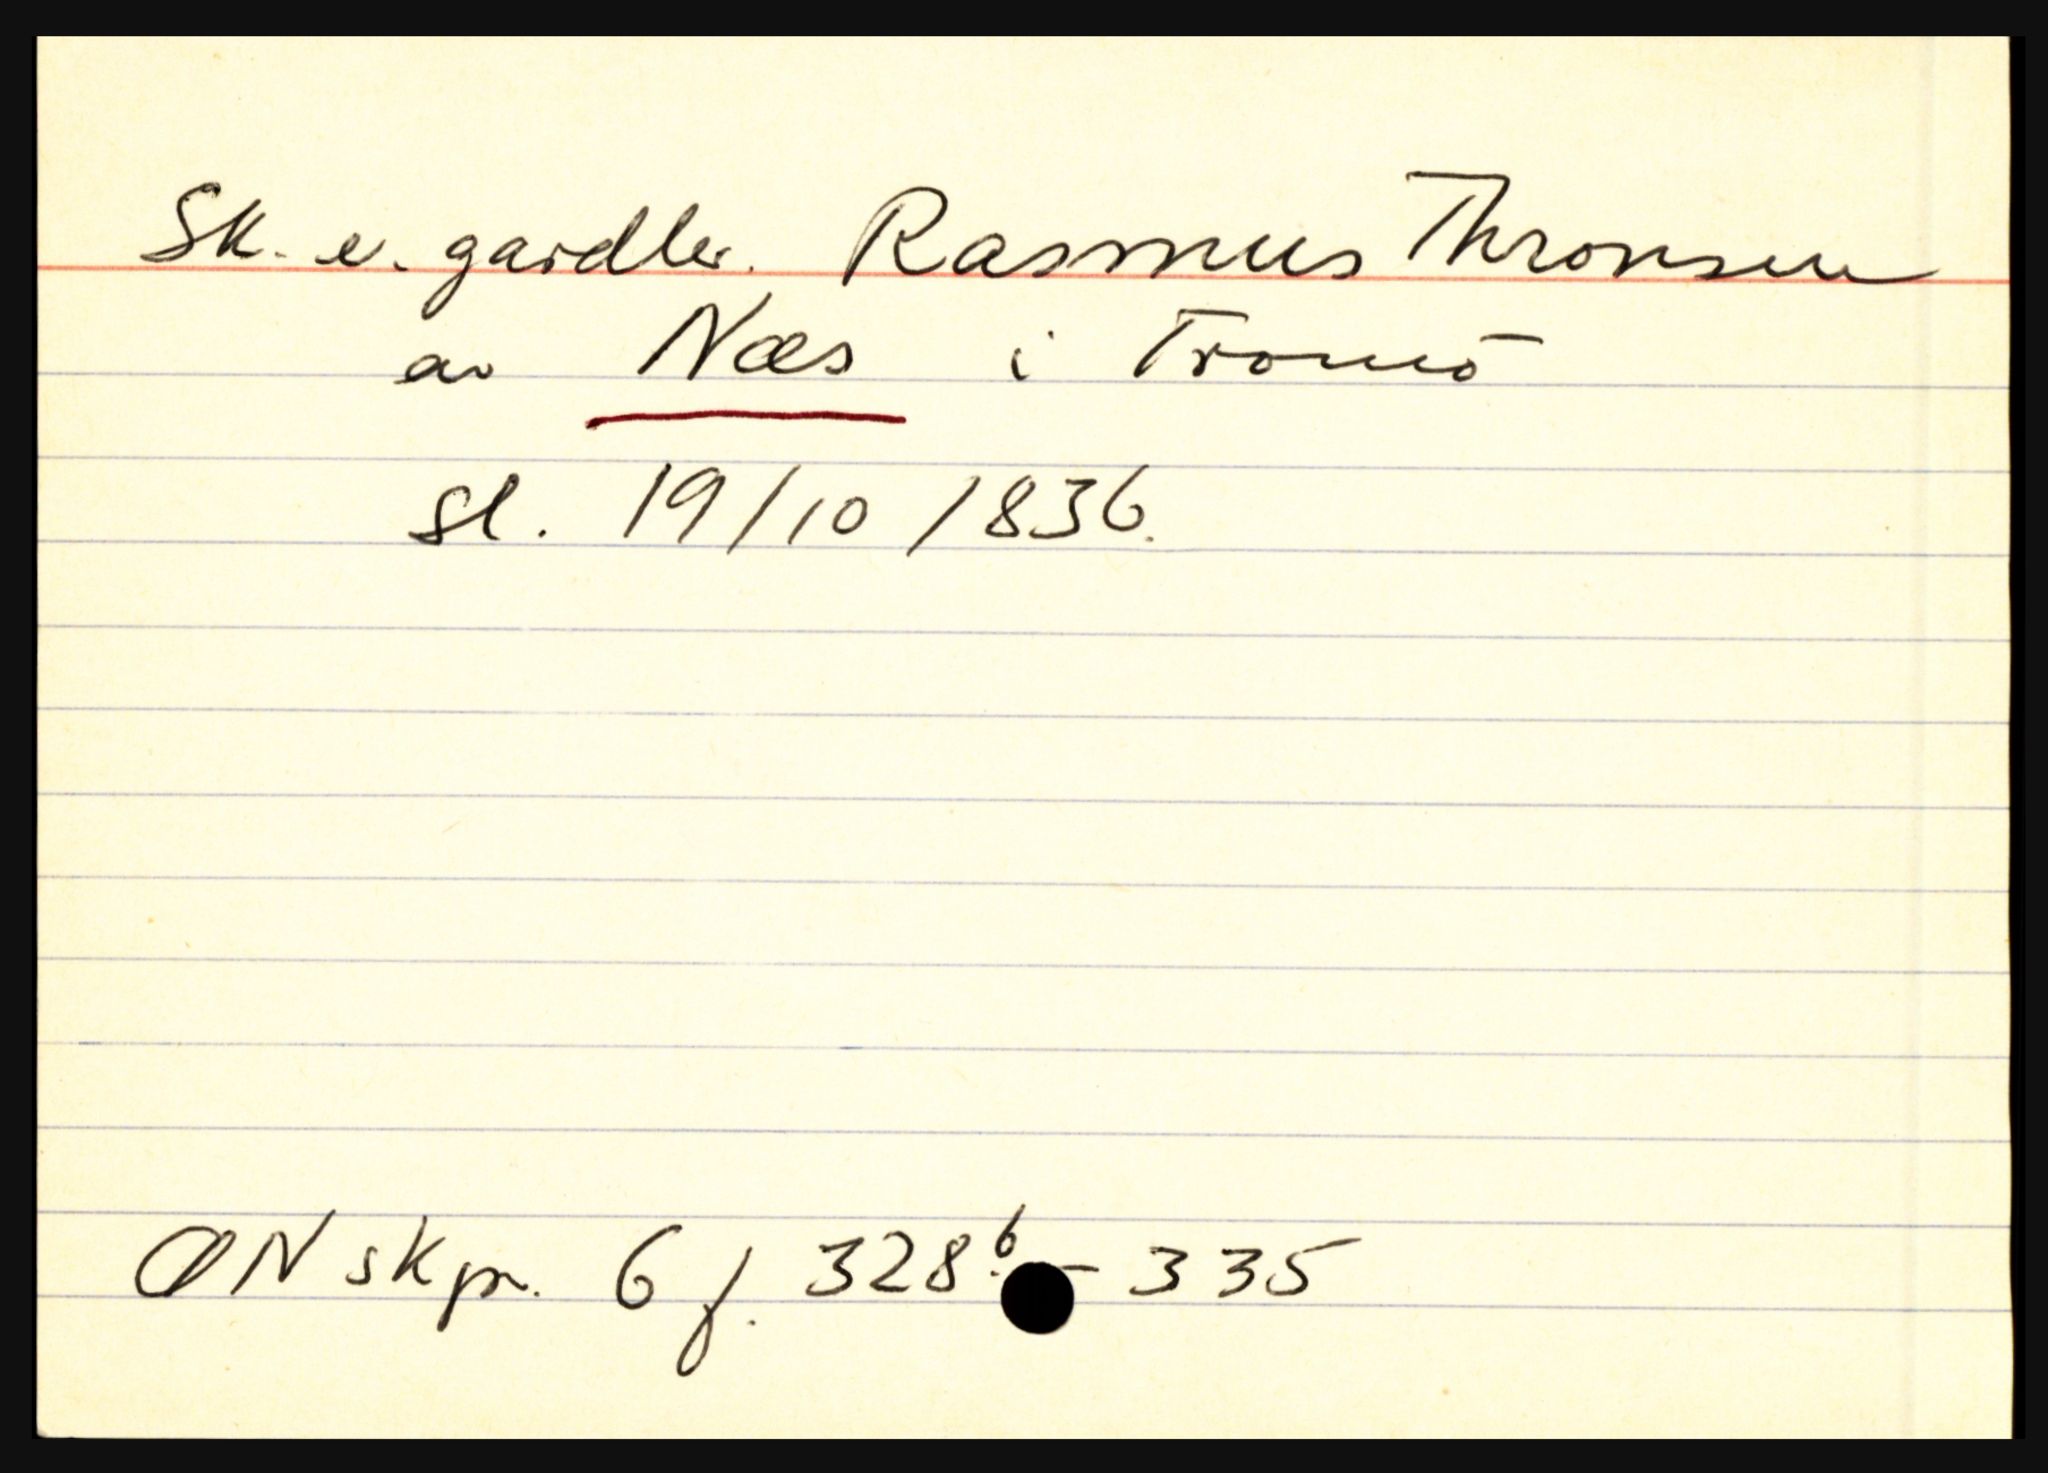 Sk. e. gardbr. Rasmus Thronsen
av Næs i Tromö
sl. 19/10/1836.
ØN skpr. 6 f. 328b. - 335